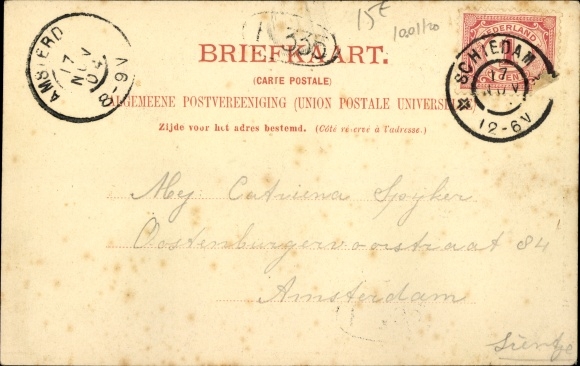 15€
1001/20
335
BRIEFKAART.
(CARTE POSTALE)
ALGEMEENE POSTVEREENIGING (UNION POSTALE UNIVERSELLE)
Zijde voor het adres bestemd. (Côté réservé à l'adresse.)
AMSTERD
17
NOV
04
6-8V
NEDERLAND
CENT
SCHIEDAM
17
NOV
12-6V
Mej. Catriena Spijker
Oostenburgervoorstraat 84
Amsterdam
Sientje